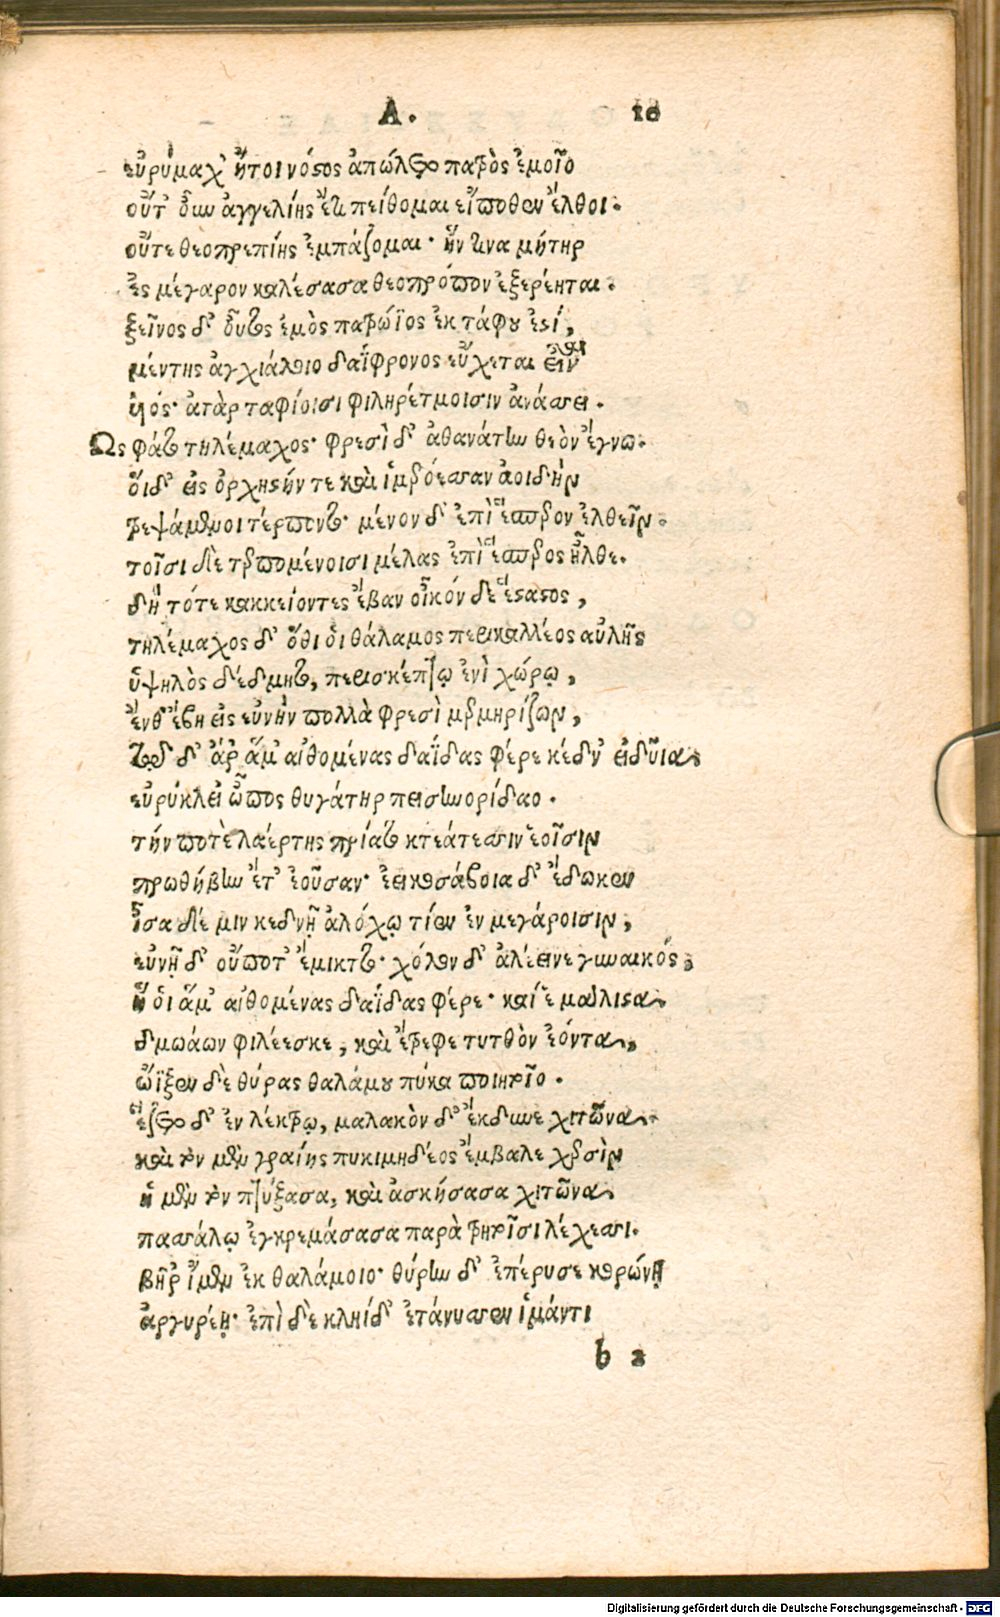 Α. 10
εὐρύμαχ' ἤτοι νόστος ἀπώλετο πατρὸς ἐμοῖο
οὔτ' οὖν ἀγγελίης ἔτι πείθομαι εἴποθεν ἔλθοι.
οὔτε θεοπρεπίης ἐμπάζομαι· ἥν τινα μήτηρ
ἐς μέγαρον καλέσασα θεοπρόπον ἐξερέηται.
ξεῖνος δ' οὗτος ἐμὸς πατρώϊος ἐκ τάφου ἐστί,
μέντης ἀγχιάλοιο δαΐφρονος εὔχεται εἶναι
υἱός· ἀτὰρ ταφίοισι φιληρέτμοισιν ἀνάσσει.
Ως φάτο τηλέμαχος· φρεσὶ δ' ἀθανάτην θεὸν ἔγνω.
ὅιδ' εἰς ὀρχηστήν τε καὶ ἱμερόεσσαν ἀοιδὴν
τρεψάμενοι τέρποντο· μένον δ' ἐπὶ ἕσπερον ἐλθεῖν.
τοῖσι δὲ τερπομένοισι μέλας ἐπὶ ἕσπερος ἦλθε.
δὴ τότε κακκείοντες ἔβαν οἶκόν δε ἕκαστος,
τηλέμαχος δ' ὅθι ὁι θάλαμος περικαλλέος αὐλῆς
ὑψηλὸς δέδμητο, περισκέπτῳ ἐνὶ χώρῳ,
ἔνθ' ἔβη εἰς εὐνὴν πολλὰ φρεσὶ μερμηρίζων,
τῷ δ' ἄρ' ἅμ' αἰθομένας δαΐδας φέρε κέδν' εἰδυῖα
εὐρύκλει' ὦπος θυγάτηρ πεισηνορίδαο.
τήν ποτὲ λαέρτης πρίατο κτεάτεσσιν ἑοῖσιν
πρωθήβην ἔτ' ἐοῦσαν· ἐεικοσάβοια δ' ἔδωκεν
ἶσα δέ μιν κεδνῇ ἀλόχῳ τίεν ἐν μεγάροισιν,
εὐνῇ δ' οὔποτ' ἔμικτο· χόλον δ' ἀλέεινε γυναικός.
ἥ ὁι ἅμ' αἰθομένας δαΐδας φέρε· καί ἑ μάλιστα
δμωάων φιλέεσκε, καὶ ἔτρεφε τυτθὸν ἐόντα,
ὤϊξεν δὲ θύρας θαλάμου πύκα ποιητοῖο.
ἕζετο δ' ἐν λέκτρῳ, μαλακὸν δ' ἔκδυνε χιτῶνα.
καὶ τὸν μὲν γραίης πυκιμηδέος ἔμβαλε χερσὶν
ἡ μὲν τὸν πτύξασα, καὶ ἀσκήσασα χιτῶνα
πασσάλῳ ἐγκρεμάσασα παρὰ τρητοῖσι λέχεσσι.
βῆ ῥ' ἴμεν ἐκ θαλάμοιο· θύρην δ' ἐπέρυσε κορώνῃ
ἀργυρέῃ· ἐπὶ δὲ κληίδ' ἐτάνυσσεν ἱμάντι
b 2
Digitalisierung gefördert durch die Deutsche Forschungsgemeinschaft - DFG